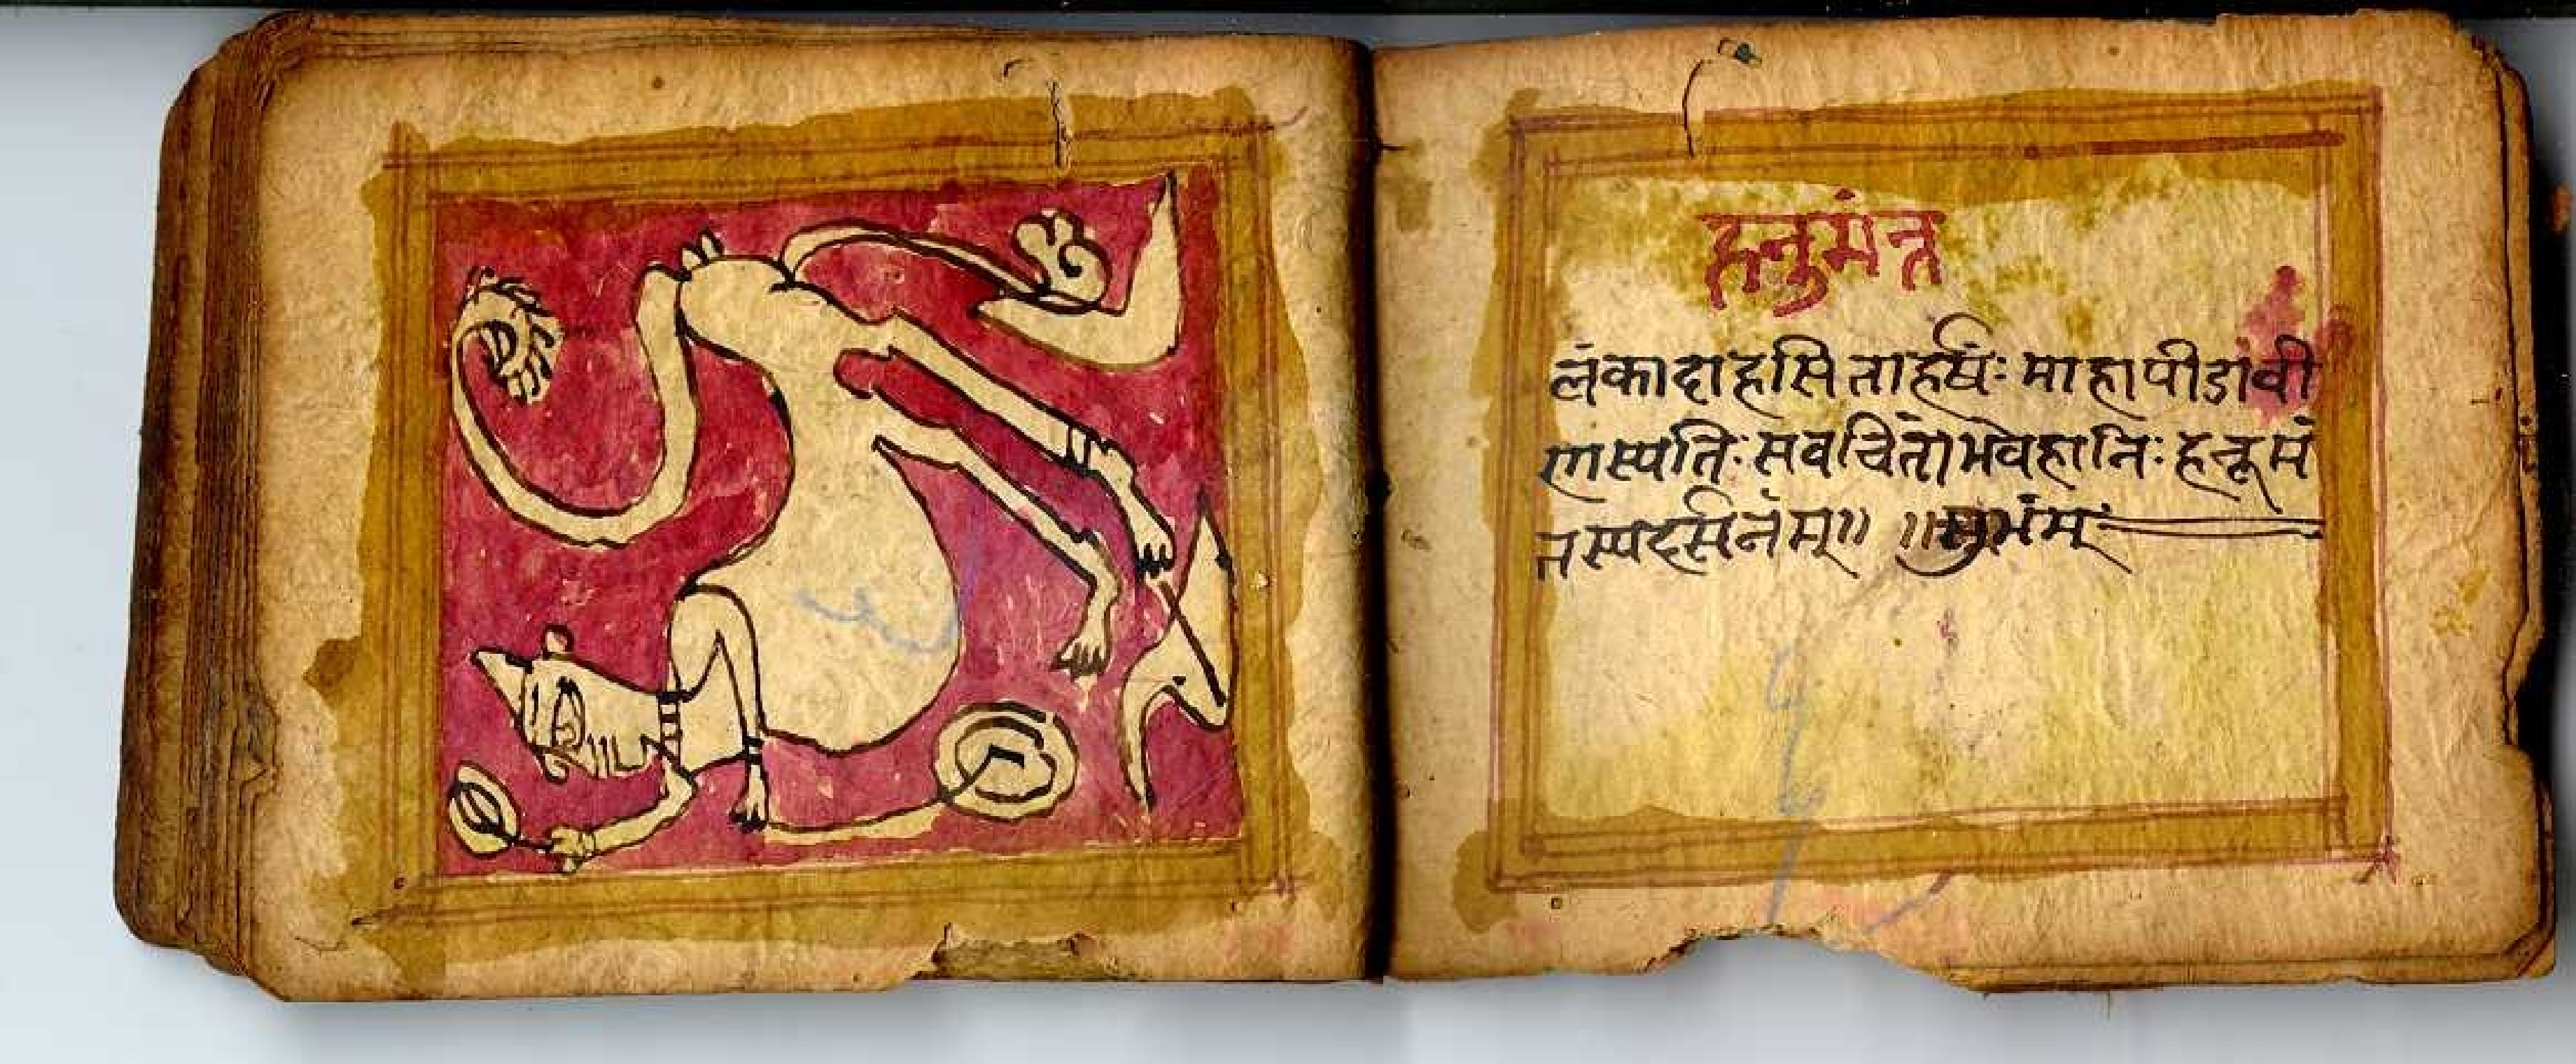 हनुमंन्त
लंकादाहसिताहर्षः माहापीडावी
णास्यतिः सवचिंताभवेहानिः हनूमं
तस्यदर्सनंम्॥ ॥सुभंम्